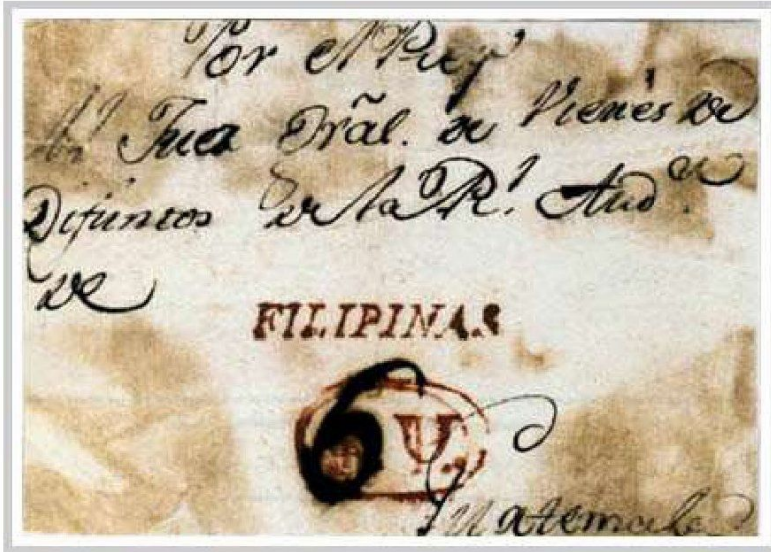 Por el Rey
Juez Gral. de Vienes de
Difuntos de la Rl. Audª.
de
FILIPINAS
Y.
Guatemala